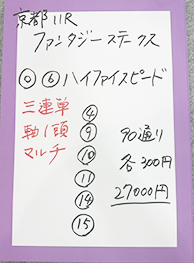 京都11R
ファンタジーステークス
◎ ⑥ ハイファイスピード
三連単
軸1頭
マルチ
④
⑨
⑩
⑪
⑭
⑮
90通り
各300円
27000円